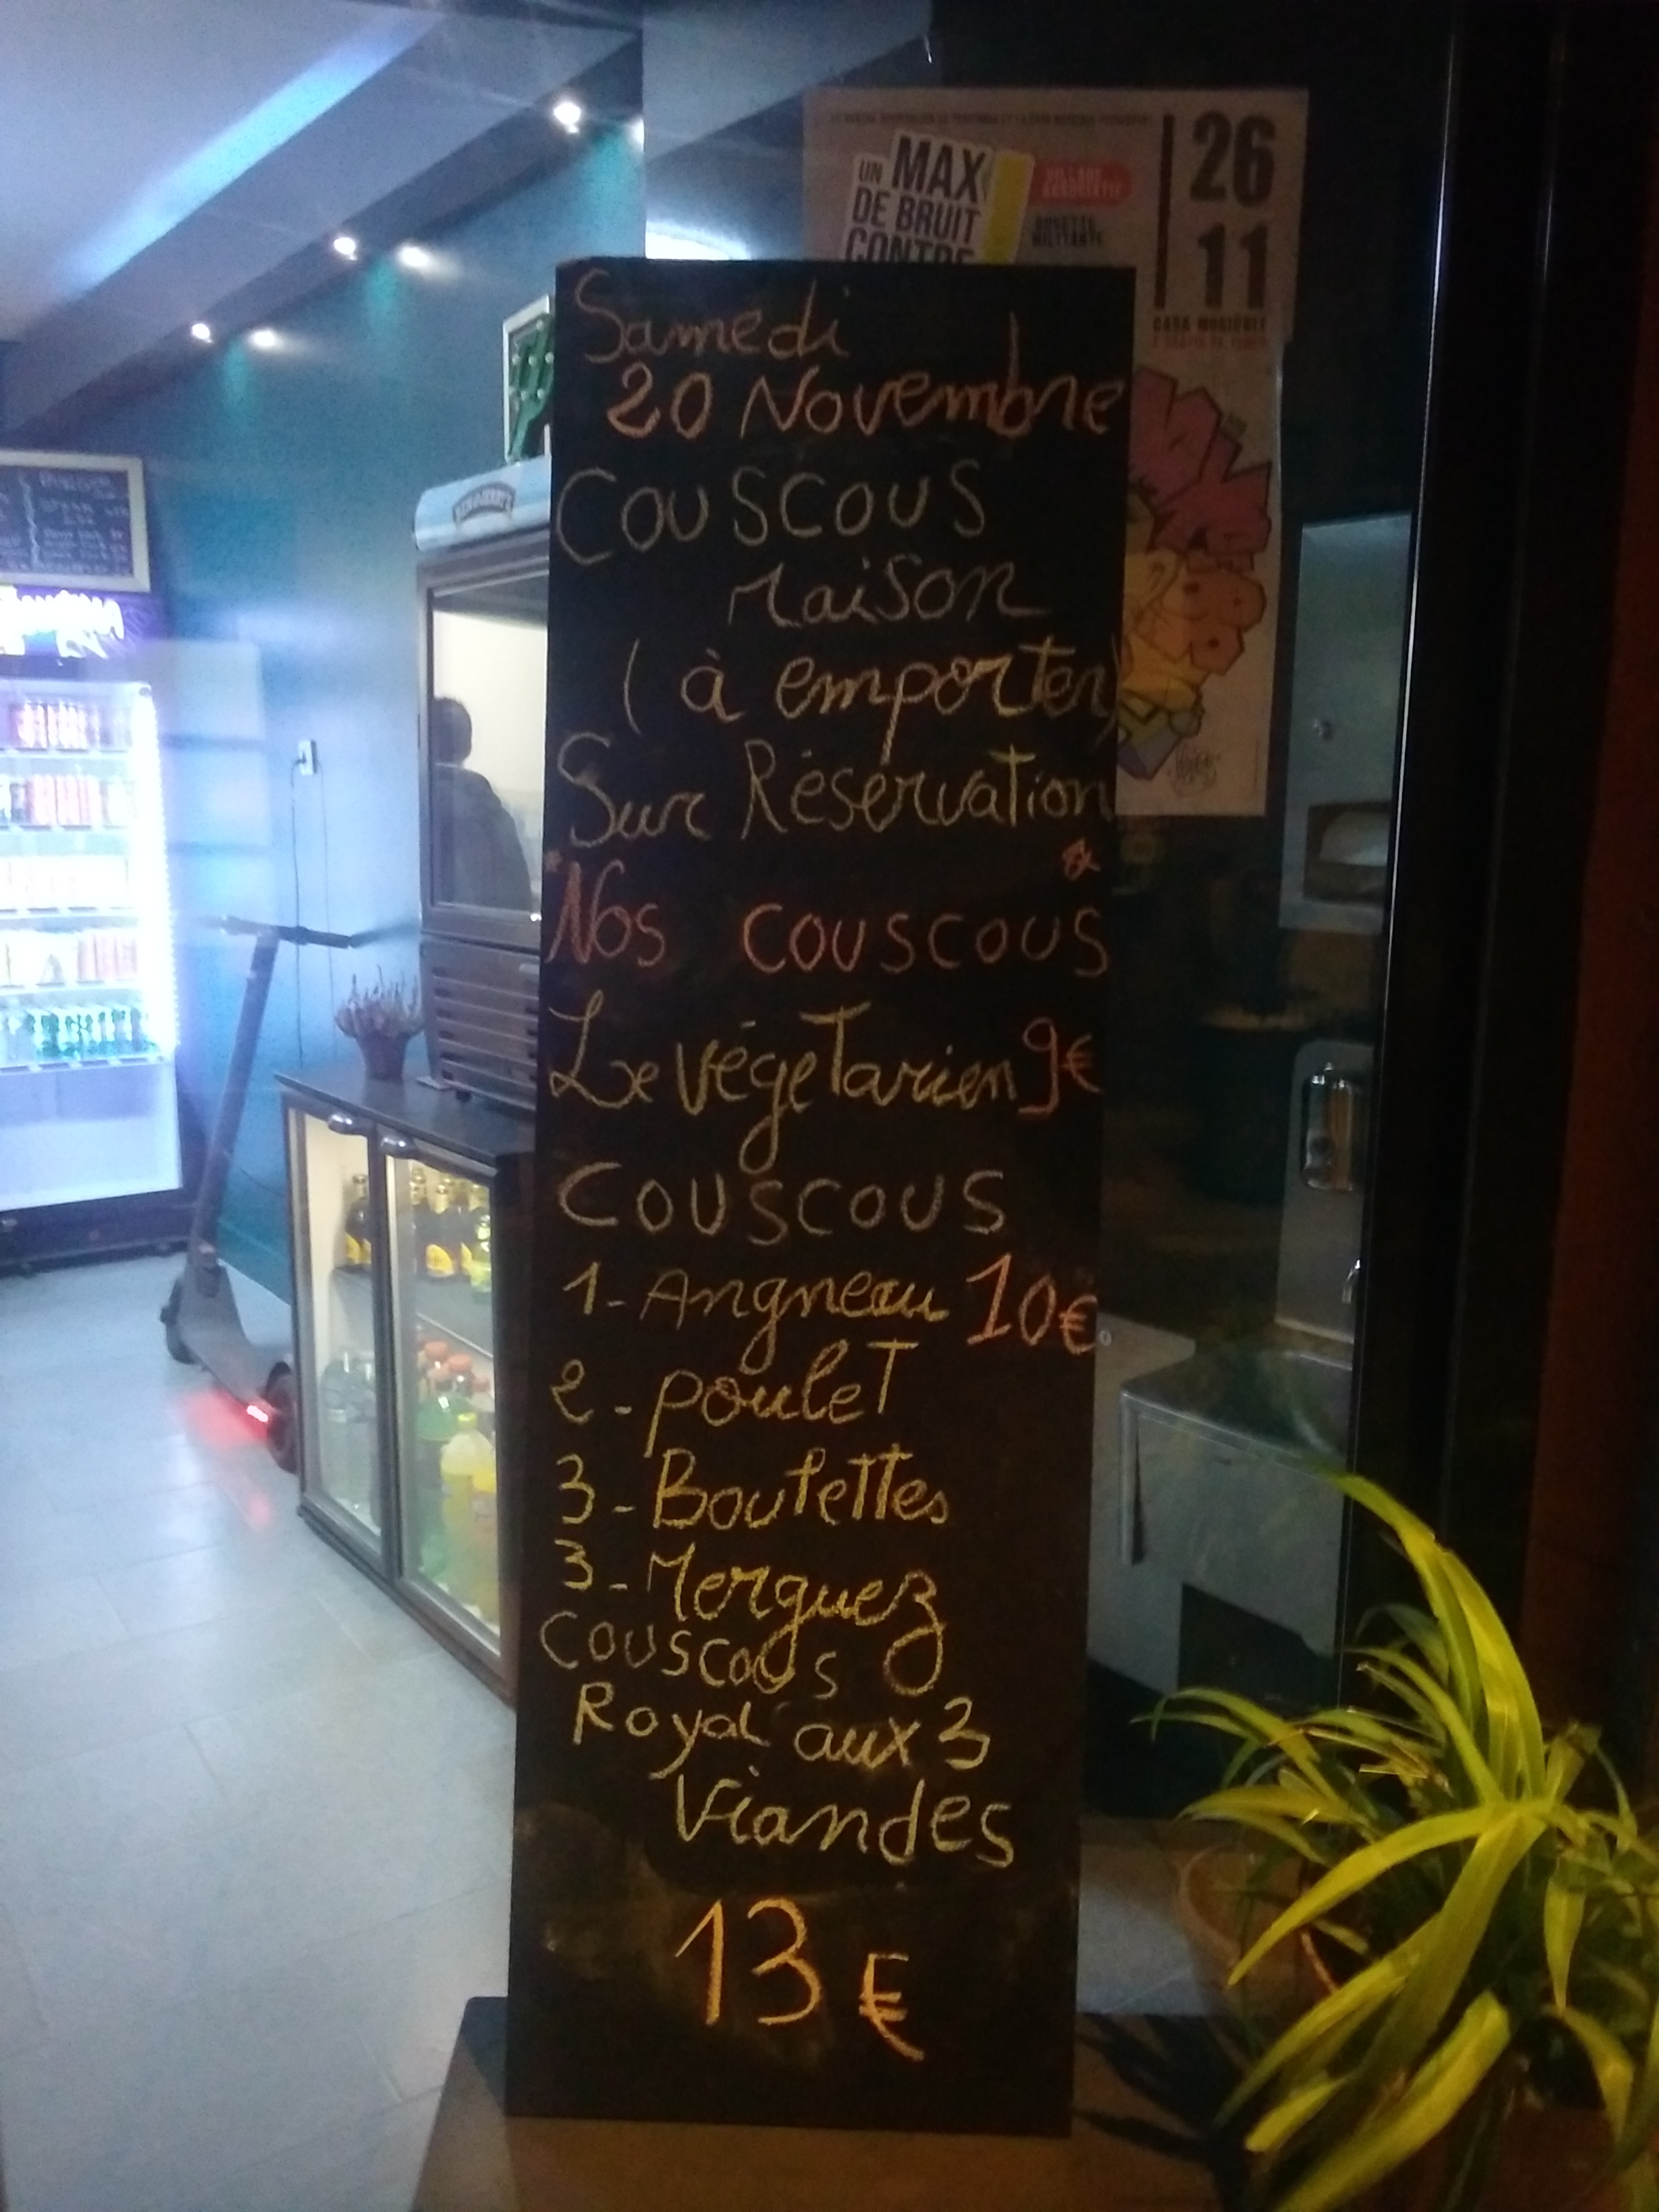 UN MAX
DE BRUIT
CONTRE
VILLAGE
ASSOCIATIF
BUVETTE
MILITANTE
26
11
CASA MUSICALE
Samedi
20 Novembre
Couscous
Maison
(à emporter)
Sur Réservation
Nos couscous
Le végétarien 9€
Couscous
1- Angneau 10€
2- poulet
3- Boulettes
3- Merguez
Couscous
Royal aux 3
Viandes
13€